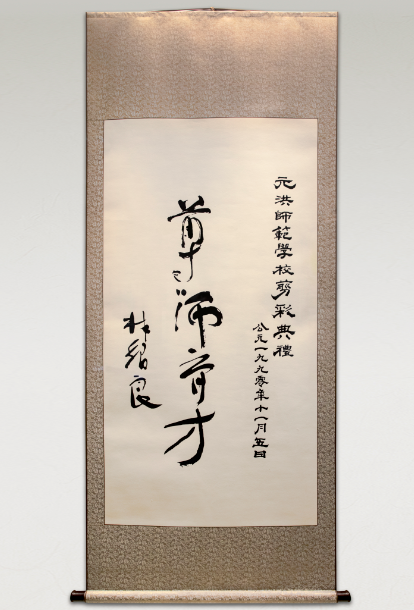 元洪師範學校剪彩典禮
公元一九九零年十一月五日
尊师育才
林紹良